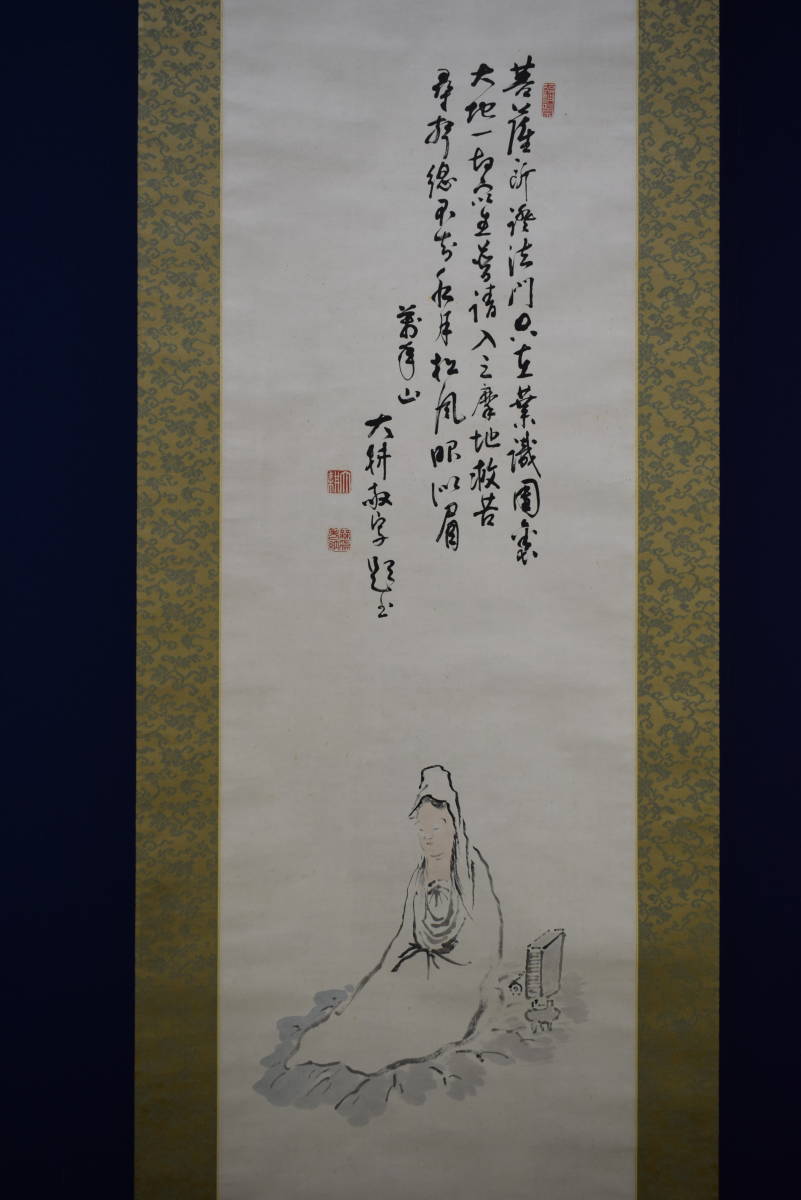 菩薩所證法門只在業識團裏
大地一切衆生普請入三摩地救苦
尋聲總不知水月松風眼似眉
萬年山
大耕 題
大耕